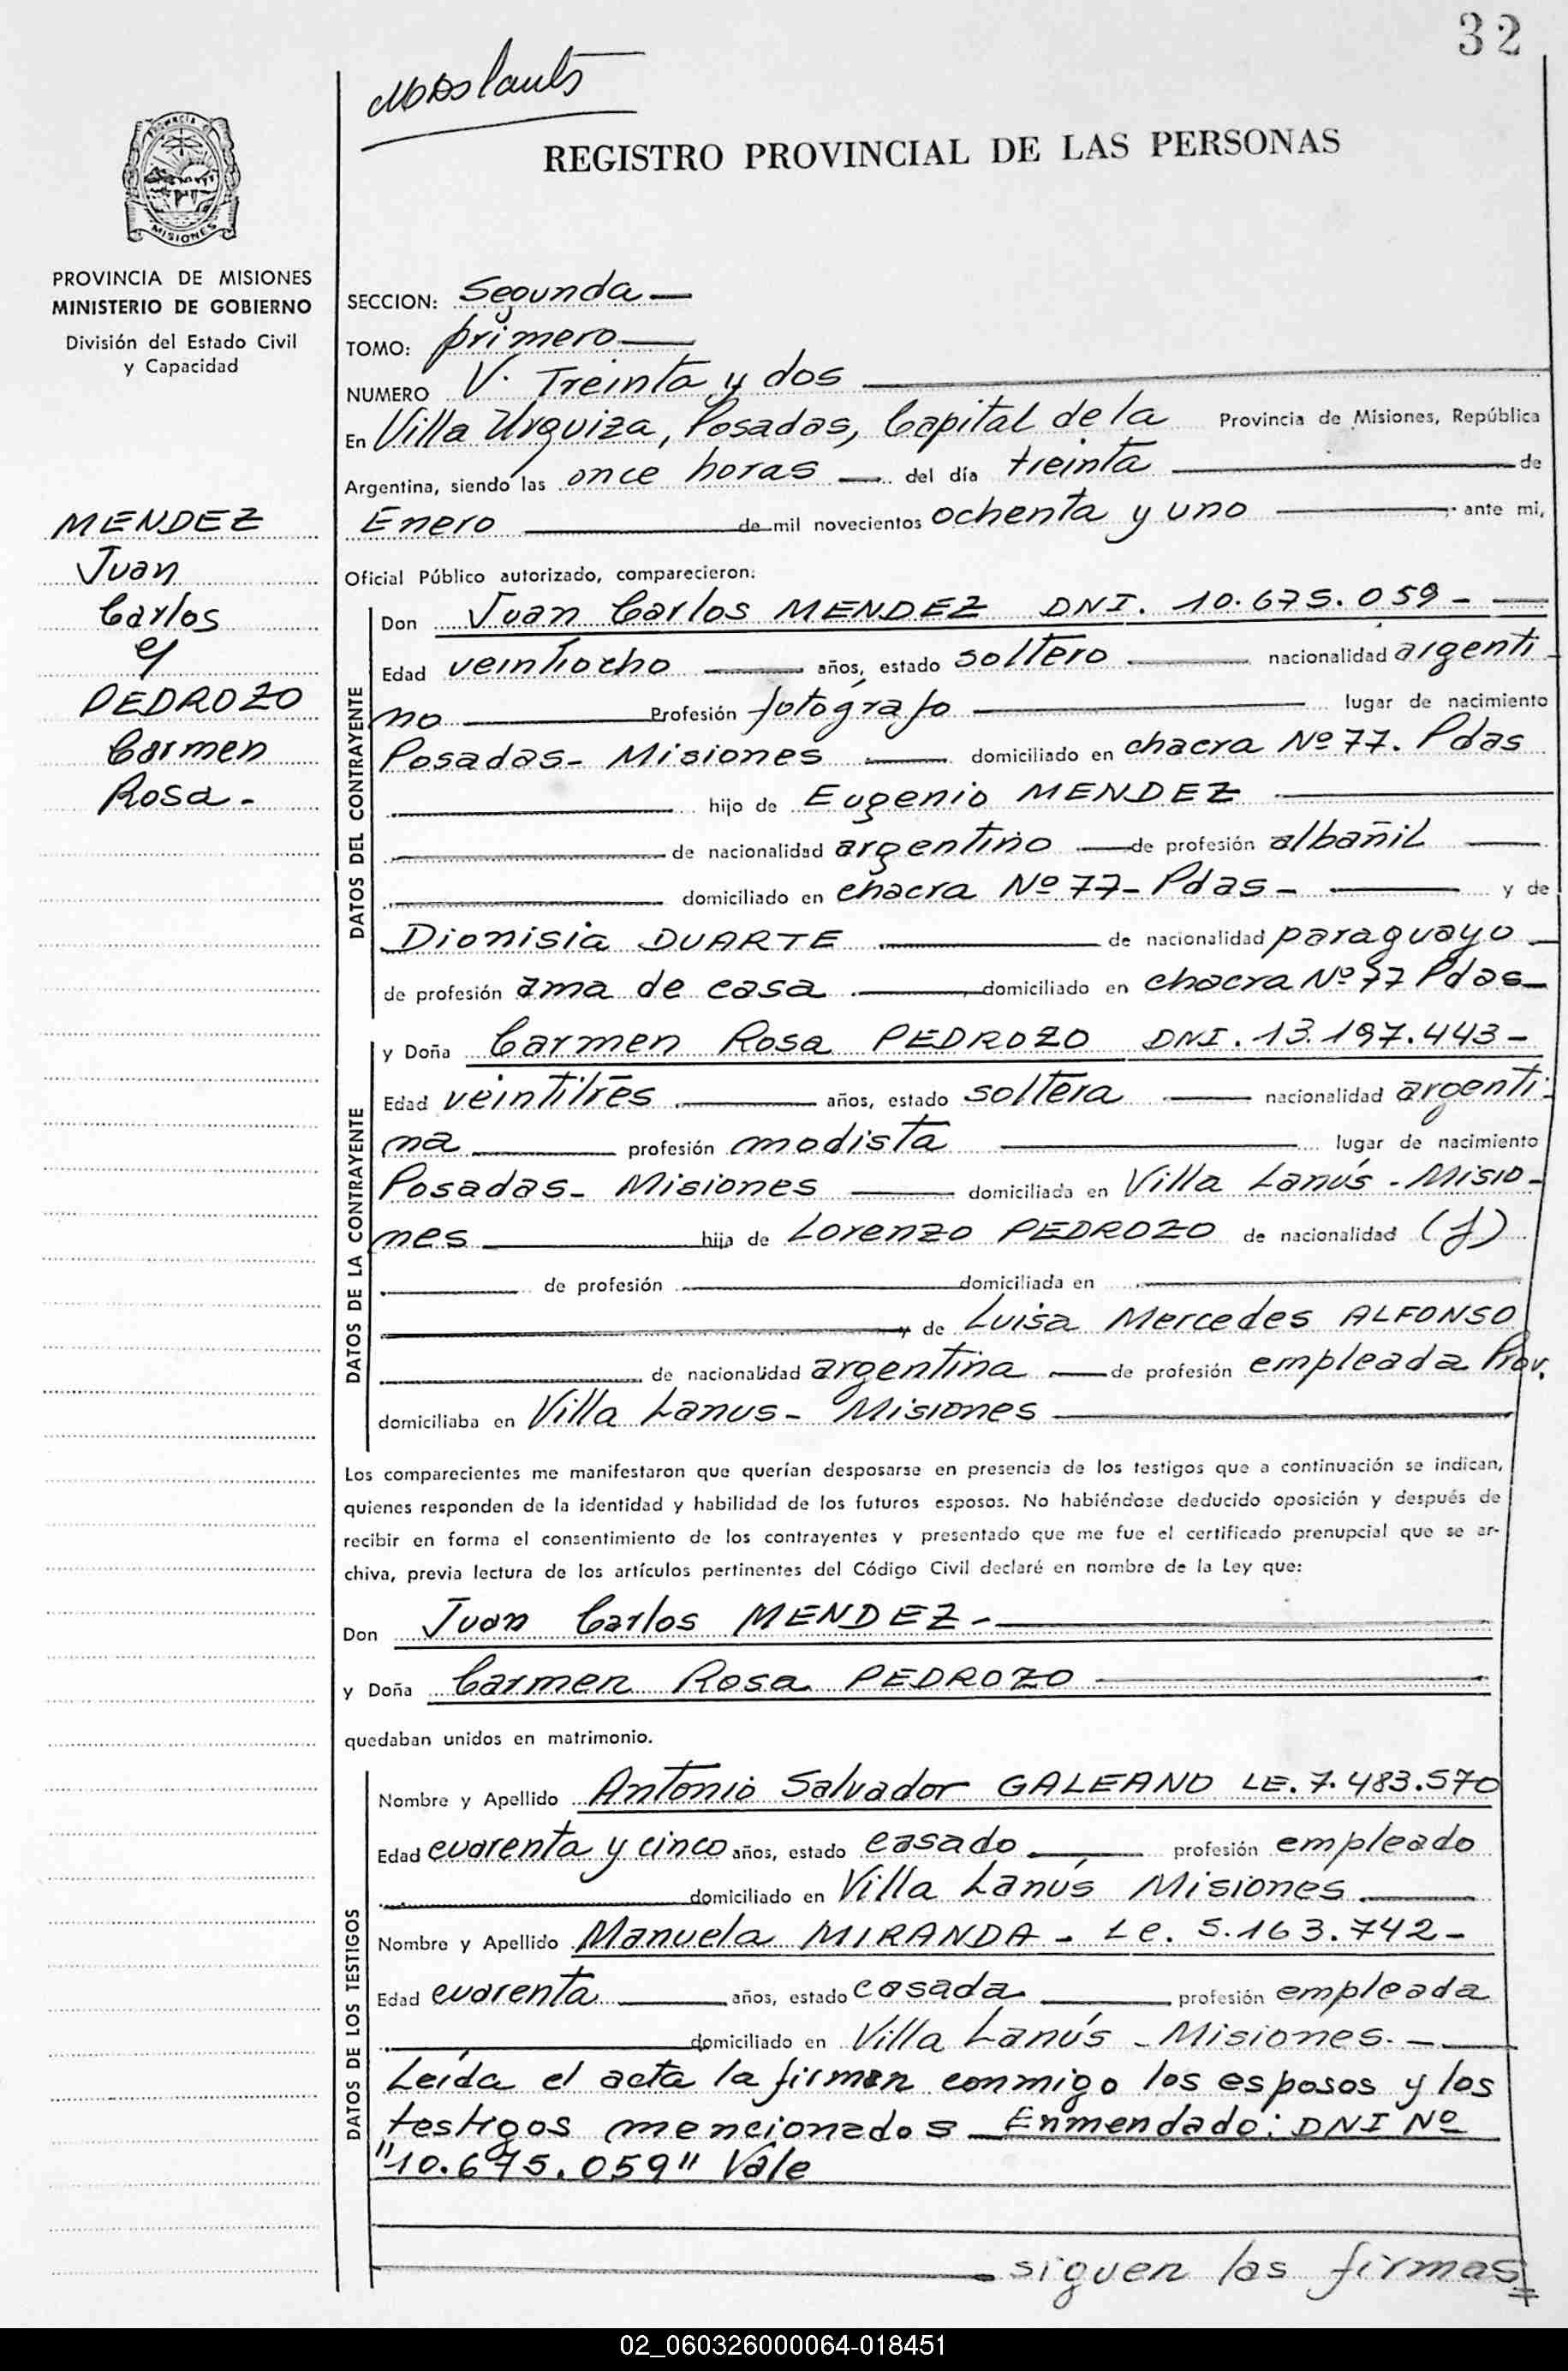 32
REGISTRO PROVINCIAL DE LAS PERSONAS
PROVINCIA DE MISIONES
PROVINCIA DE MISIONES
MINISTERIO DE GOBIERNO
División del Estado Civil
y Capacidad
MENDEZ
Juan
Carlos
y
PEDROZO
Carmen
Rosa.-
SECCION: Segunda —
TOMO: primero —
NUMERO V. Treinta y dos —
En Villa Urquiza, Posadas, Capital de la Provincia de Misiones, República
Argentina, siendo las once horas — del día treinta — de
Enero — de mil novecientos ochenta y uno — ante mi,
Oficial Público autorizado, comparecieron:
DATOS DEL CONTRAYENTE
Don Juan Carlos MENDEZ DNI. 10.675.059 - —
Edad veintiocho — años, estado soltero — nacionalidad argenti-
no — Profesión fotógrafo — lugar de nacimiento
Posadas- Misiones — domiciliado en chacra Nº 77. Pdas
— hijo de Eugenio MENDEZ —
— de nacionalidad argentino — de profesión albañil —
— domiciliado en chacra Nº 77- Pdas - — y de
Dionisia DUARTE — de nacionalidad paraguayo —
de profesión ama de casa — domiciliado en chacra Nº 77 Pdas —
DATOS DE LA CONTRAYENTE
y Doña Carmen Rosa PEDROZO DNI. 13.197.443 -
Edad veintitrés — años, estado soltera — nacionalidad argenti-
na — profesión modista — lugar de nacimiento
Posadas- Misiones — domiciliada en Villa Lanús - Misio-
nes — hija de Lorenzo PEDROZO de nacionalidad (f)
— de profesión — domiciliada en —
— y de Luisa Mercedes ALFONSO
— de nacionalidad argentina — de profesión empleada Prov.
domiciliaba en Villa Lanus - Misiones —
Los comparecientes me manifestaron que querían desposarse en presencia de los testigos que a continuación se indican,
quienes responden de la identidad y habilidad de los futuros esposos. No habiéndose deducido oposición y después de
recibir en forma el consentimiento de los contrayentes y presentado que me fue el certificado prenupcial que se ar-
chiva, previa lectura de los artículos pertinentes del Código Civil declaré en nombre de la Ley que:
Don Juan Carlos MENDEZ - —
y Doña Carmen Rosa PEDROZO —
quedaban unidos en matrimonio.
DATOS DE LOS TESTIGOS
Nombre y Apellido Antonio Salvador GALEANO LE. 7.483.570
Edad cuarenta y cinco años, estado casado — profesión empleado
— domiciliado en Villa Lanús Misiones —
Nombre y Apellido Manuela MIRANDA - Le. 5.163.742 -
Edad cuarenta — años, estado casada — profesión empleada
— domiciliado en Villa Lanús - Misiones. —
Leída el acta la firman conmigo los esposos y los
testigos mencionados — Enmendado: DNI Nº
"10.675.059" Vale
— siguen las firmas
02_060326000064-018451